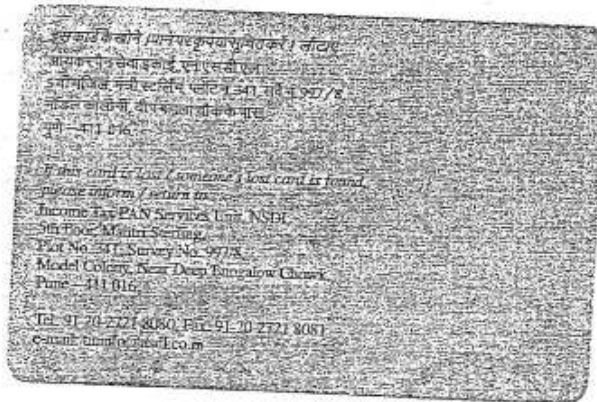 इस कार्ड के खोने / पाने पर कृपया सूचित करें / लौटाएं
आयकर पैन सेवा इकाई, एन एस डी एल
5 वी मंजिल, मंत्री स्टर्लिंग, प्लॉट नं. 341, सर्वे नं. 997/8,
मॉडल कालोनी, दीप बंगला चौक के पास,
पुणे - 411 016
If this card is lost / someone's lost card is found,
please inform / return to
Income Tax PAN Services Unit, NSDL
5th Floor, Mantri Sterling,
Plot No. 341, Survey No. 997/8,
Model Colony, Near Deep Bungalow Chowk,
Pune - 411 016
Tel: 91-20-2721 8080, Fax: 91-20-2721 8081
e-mail: